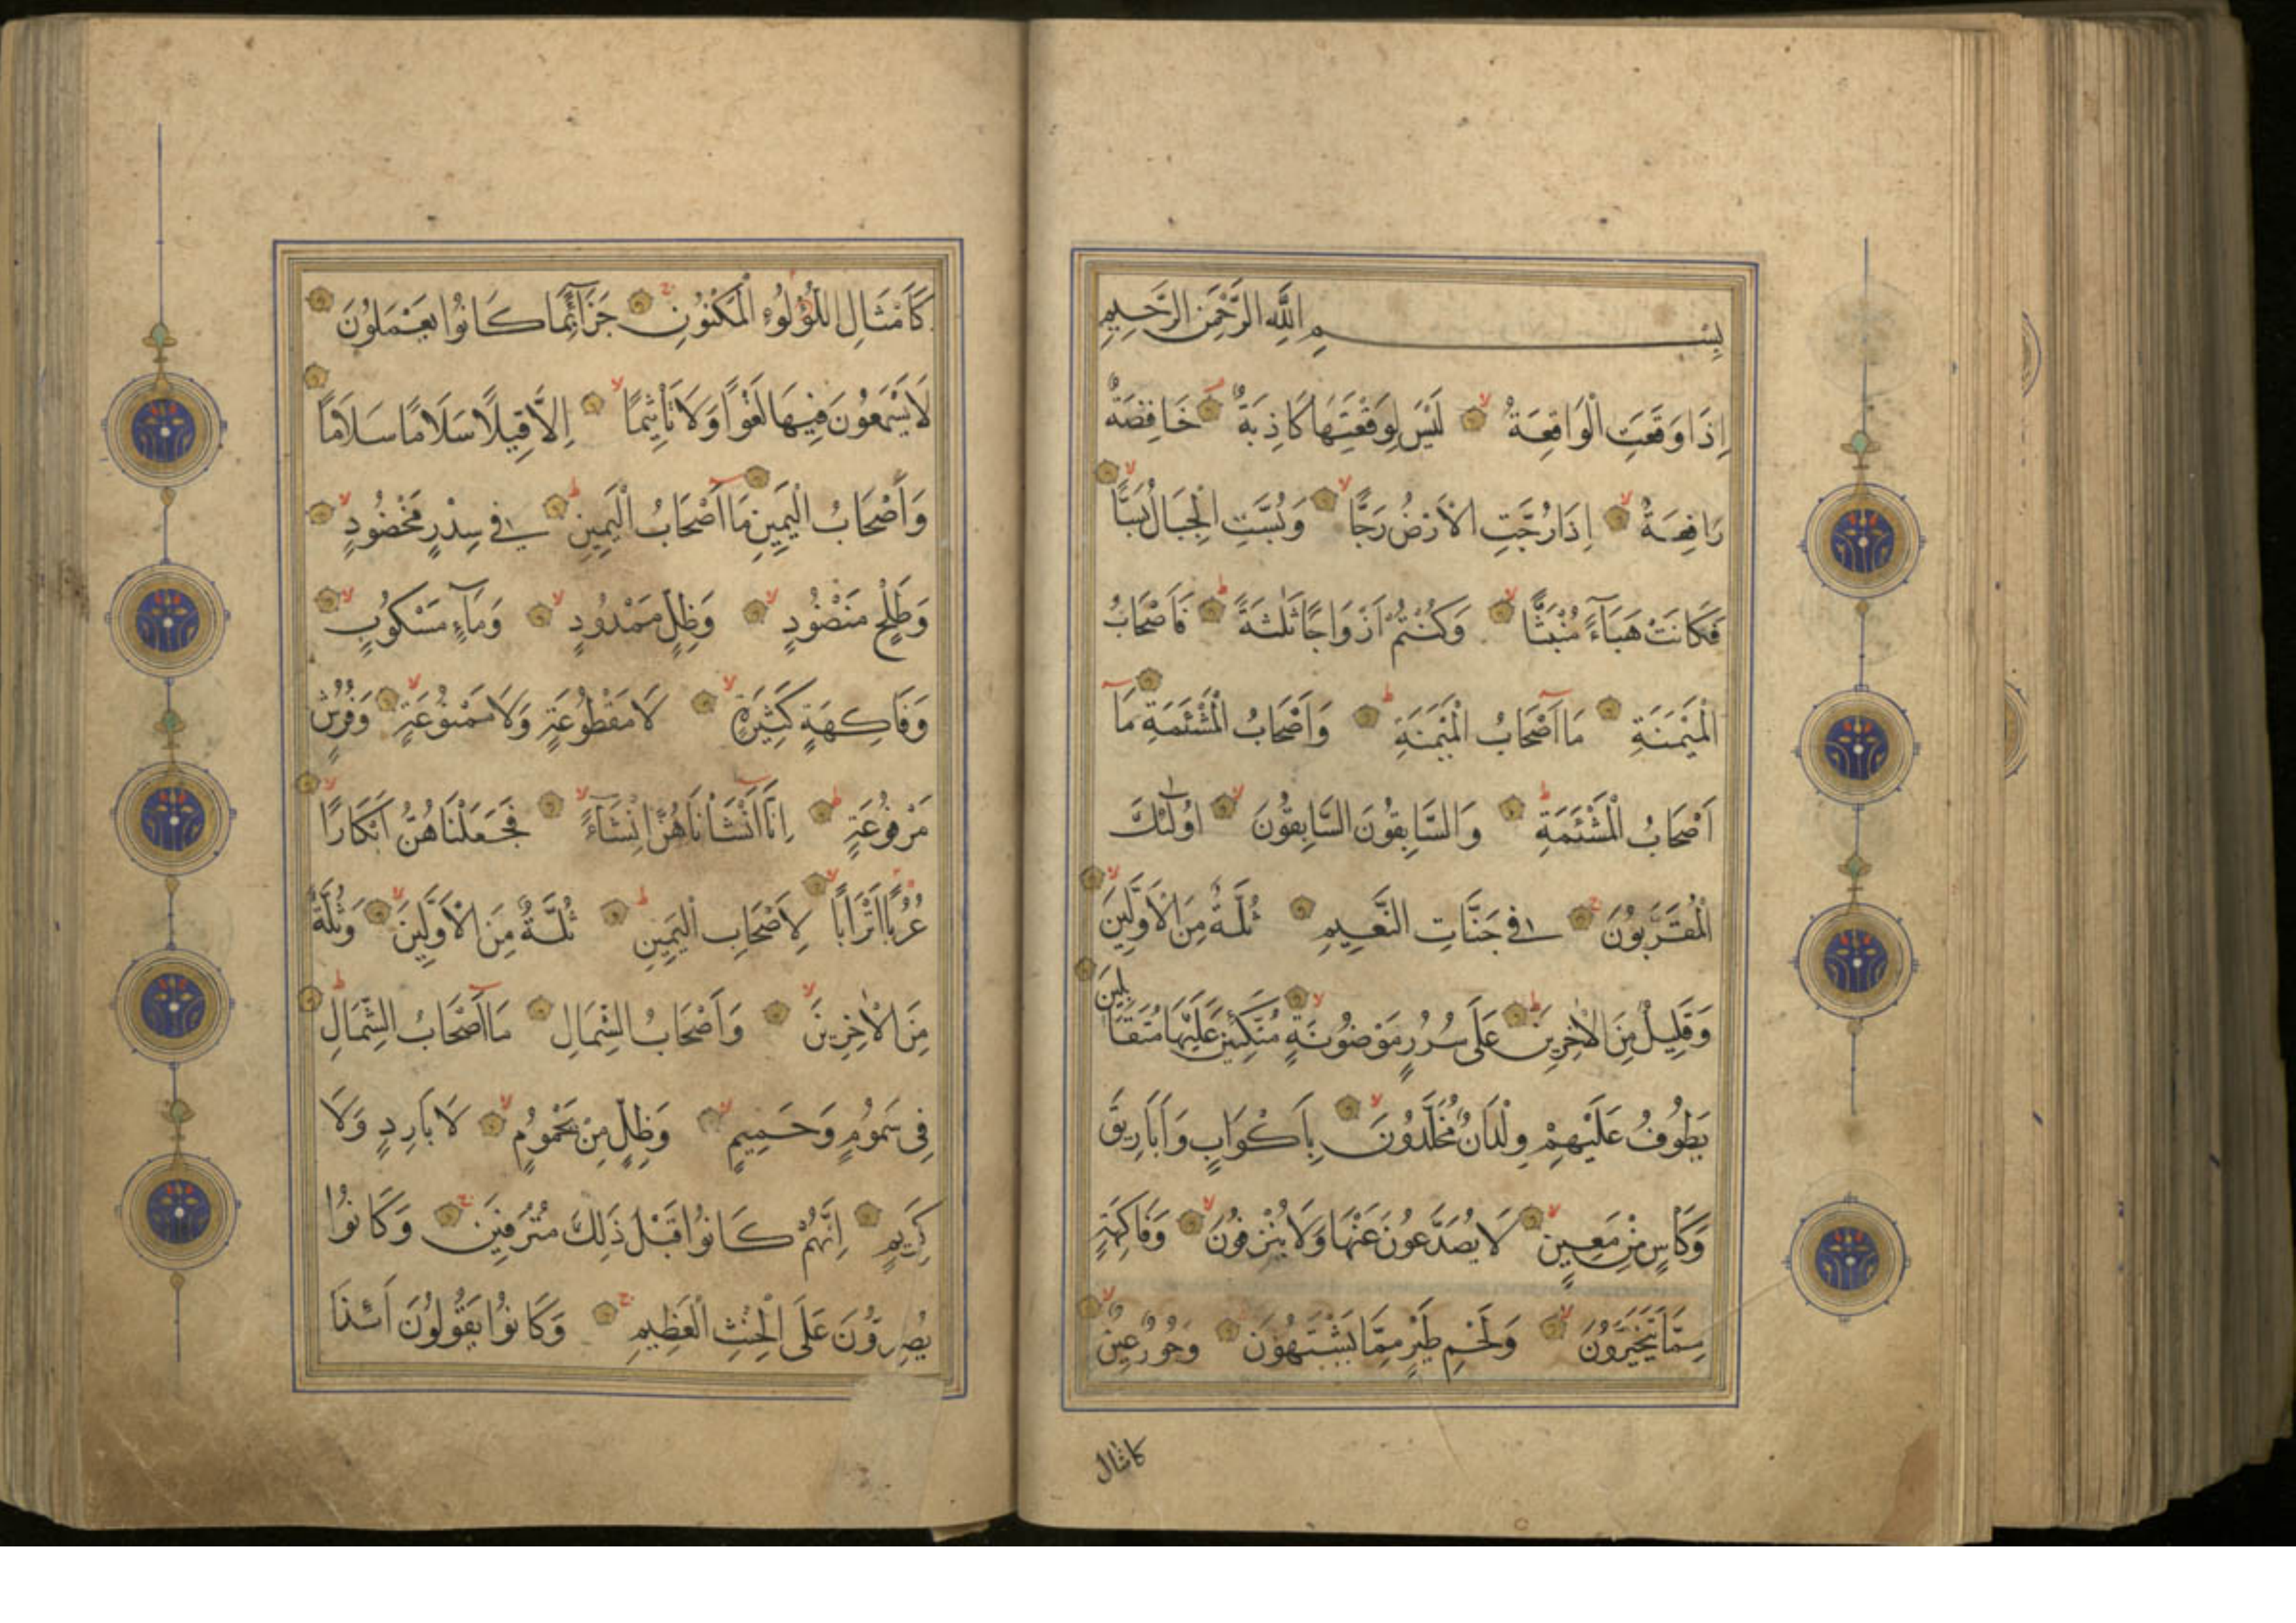 بِسْمِ اللَّهِ الرَّحْمٰنِ الرَّحِيمِ
اِذَا وَقَعَتِ الْوَاقِعَةُ لَيْسَ لِوَقْعَتِهَا كَاذِبَةٌ خَافِضَةٌ
رَافِعَةٌ اِذَا رُجَّتِ الْاَرْضُ رَجًّا وَبُسَّتِ الْجِبَالُ بَسًّا
فَكَانَتْ هَبَآءً مُنْبَثًّا وَكُنْتُمْ اَزْوَاجًا ثَلٰثَةً فَاَصْحَابُ
الْمَيْمَنَةِ مَا اَصْحَابُ الْمَيْمَنَةِ وَاَصْحَابُ الْمَشْئَمَةِ مَا
اَصْحَابُ الْمَشْئَمَةِ وَالسَّابِقُونَ السَّابِقُونَ اُولٰئِكَ
الْمُقَرَّبُونَ فِي جَنَّاتِ النَّعِيمِ ثُلَّةٌ مِنَ الْاَوَّلِينَ
وَقَلِيلٌ مِنَ الْاٰخِرِينَ عَلَى سُرُرٍ مَوْضُونَةٍ مُتَّكِئِينَ عَلَيْهَا مُتَقَابِلِينَ
يَطُوفُ عَلَيْهِمْ وِلْدَانٌ مُخَلَّدُونَ بِاَكْوَابٍ وَاَبَارِيقَ
وَكَاْسٍ مِنْ مَعِينٍ لَا يُصَدَّعُونَ عَنْهَا وَلَا يُنْزِفُونَ وَفَاكِهَةٍ
مِمَّا يَتَخَيَّرُونَ وَلَحْمِ طَيْرٍ مِمَّا يَشْتَهُونَ وَحُورٌ عِينٌ
كامثال
كَاَمْثَالِ اللُّؤْلُوءِ الْمَكْنُونِ جَزَآءً بِمَا كَانُوا يَعْمَلُونَ
لَا يَسْمَعُونَ فِيهَا لَغْوًا وَلَا تَاْثِيمًا اِلَّا قِيلًا سَلَامًا سَلَامًا
وَاَصْحَابُ الْيَمِينِ مَا اَصْحَابُ الْيَمِينِ فِي سِدْرٍ مَخْضُودٍ
وَطَلْحٍ مَنْضُودٍ وَظِلٍّ مَمْدُودٍ وَمَآءٍ مَسْكُوبٍ
وَفَاكِهَةٍ كَثِيرَةٍ لَا مَقْطُوعَةٍ وَلَا مَمْنُوعَةٍ وَفُرُشٍ
مَرْفُوعَةٍ اِنَّا اَنْشَاْنَاهُنَّ اِنْشَآءً فَجَعَلْنَاهُنَّ اَبْكَارًا
عُرُبًا اَتْرَابًا لِاَصْحَابِ الْيَمِينِ ثُلَّةٌ مِنَ الْاَوَّلِينَ وَثُلَّةٌ
مِنَ الْاٰخِرِينَ وَاَصْحَابُ الشِّمَالِ مَا اَصْحَابُ الشِّمَالِ
فِي سَمُومٍ وَحَمِيمٍ وَظِلٍّ مِنْ يَحْمُومٍ لَا بَارِدٍ وَلَا
كَرِيمٍ اِنَّهُمْ كَانُوا قَبْلَ ذَلِكَ مُتْرَفِينَ وَكَانُوا
يُصِرُّونَ عَلَى الْحِنْثِ الْعَظِيمِ وَكَانُوا يَقُولُونَ اَئِذَا